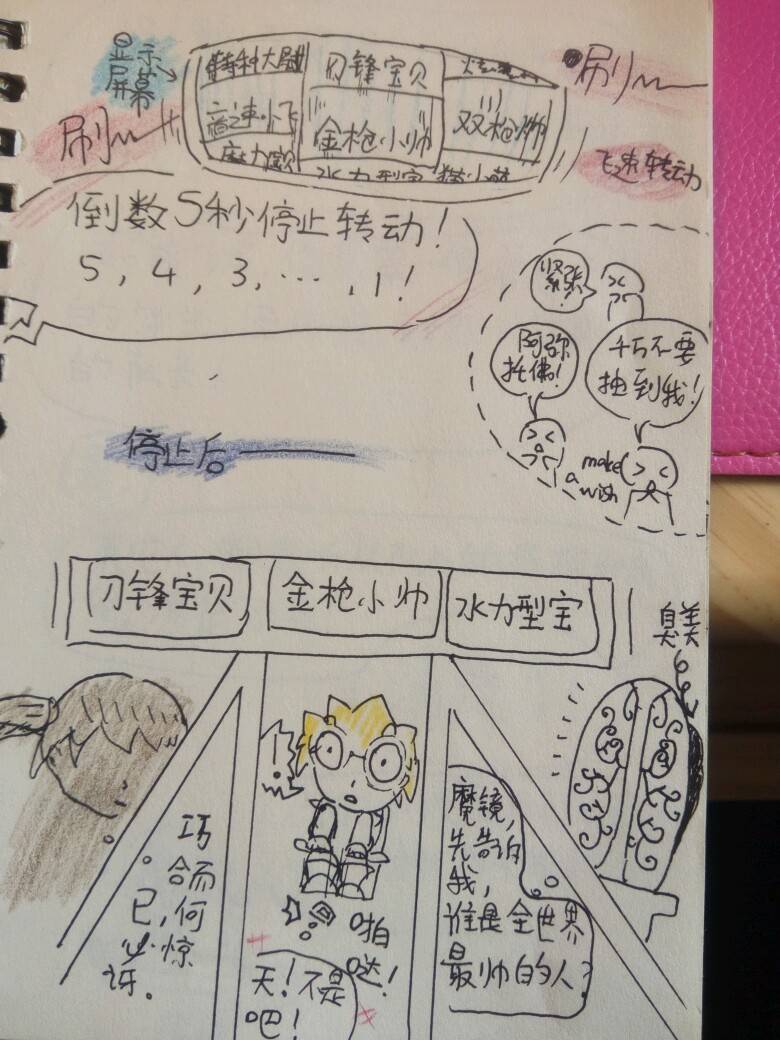 显示
屏幕
特种大尉
刀锋宝贝
刷
音速小飞
金枪小帅
双枪帅
刷
魔力宝贝
水力型宝
飞速转动
倒数5秒停止转动！
5，4，3，…，1！
紧张！
阿弥
托佛！
千万不要
抽到我！
make
a wish
停止后——
刀锋宝贝
金枪小帅
水力型宝
臭美
巧
合而
已，何
必惊
讶。
！
啪
哒！
天！不是
吧！
魔镜，
先告诉
我，
谁是全世界
最帅的人？